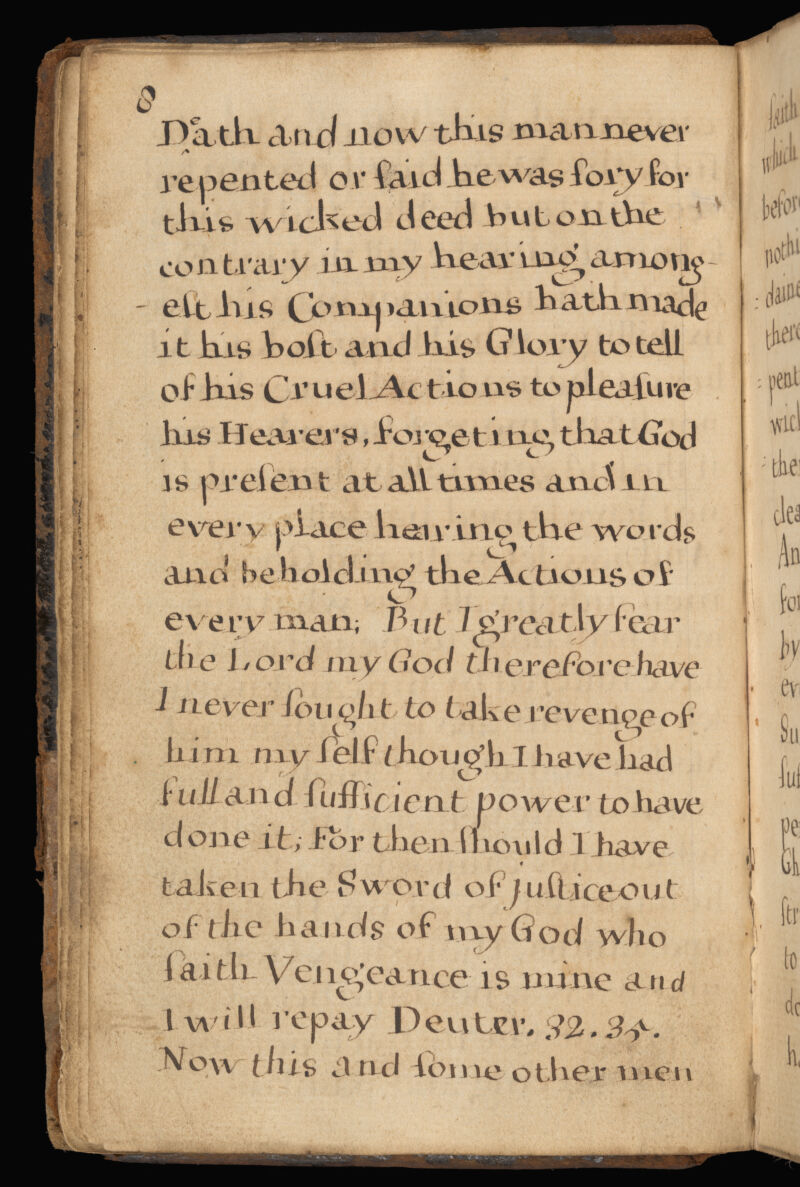 8
Death and now this man never
repented or ſaid he was ſory for
this wicked deed but on the
contrary in my hearing among-
- eſt his Companions hath made
it his boſt and his Glory to tell
of his Cruel Actions to pleaſure
his Hearers, forgeting that God
is preſent at all times and in
every place hearing the words
and beholding the Actions of
every man; But I greatly fear
the Lord my God therefore have
I never ſought to take revenge of
him my ſelf though I have had
full and ſufficient power to have
done it; For then ſhould I have
taken the Sword of juſtice out
of the hands of my God who
ſaith Vengeance is mine and
I will repay Deuter. 32. 35.
Now this and ſome other men
faith
which
: the
An
by
to